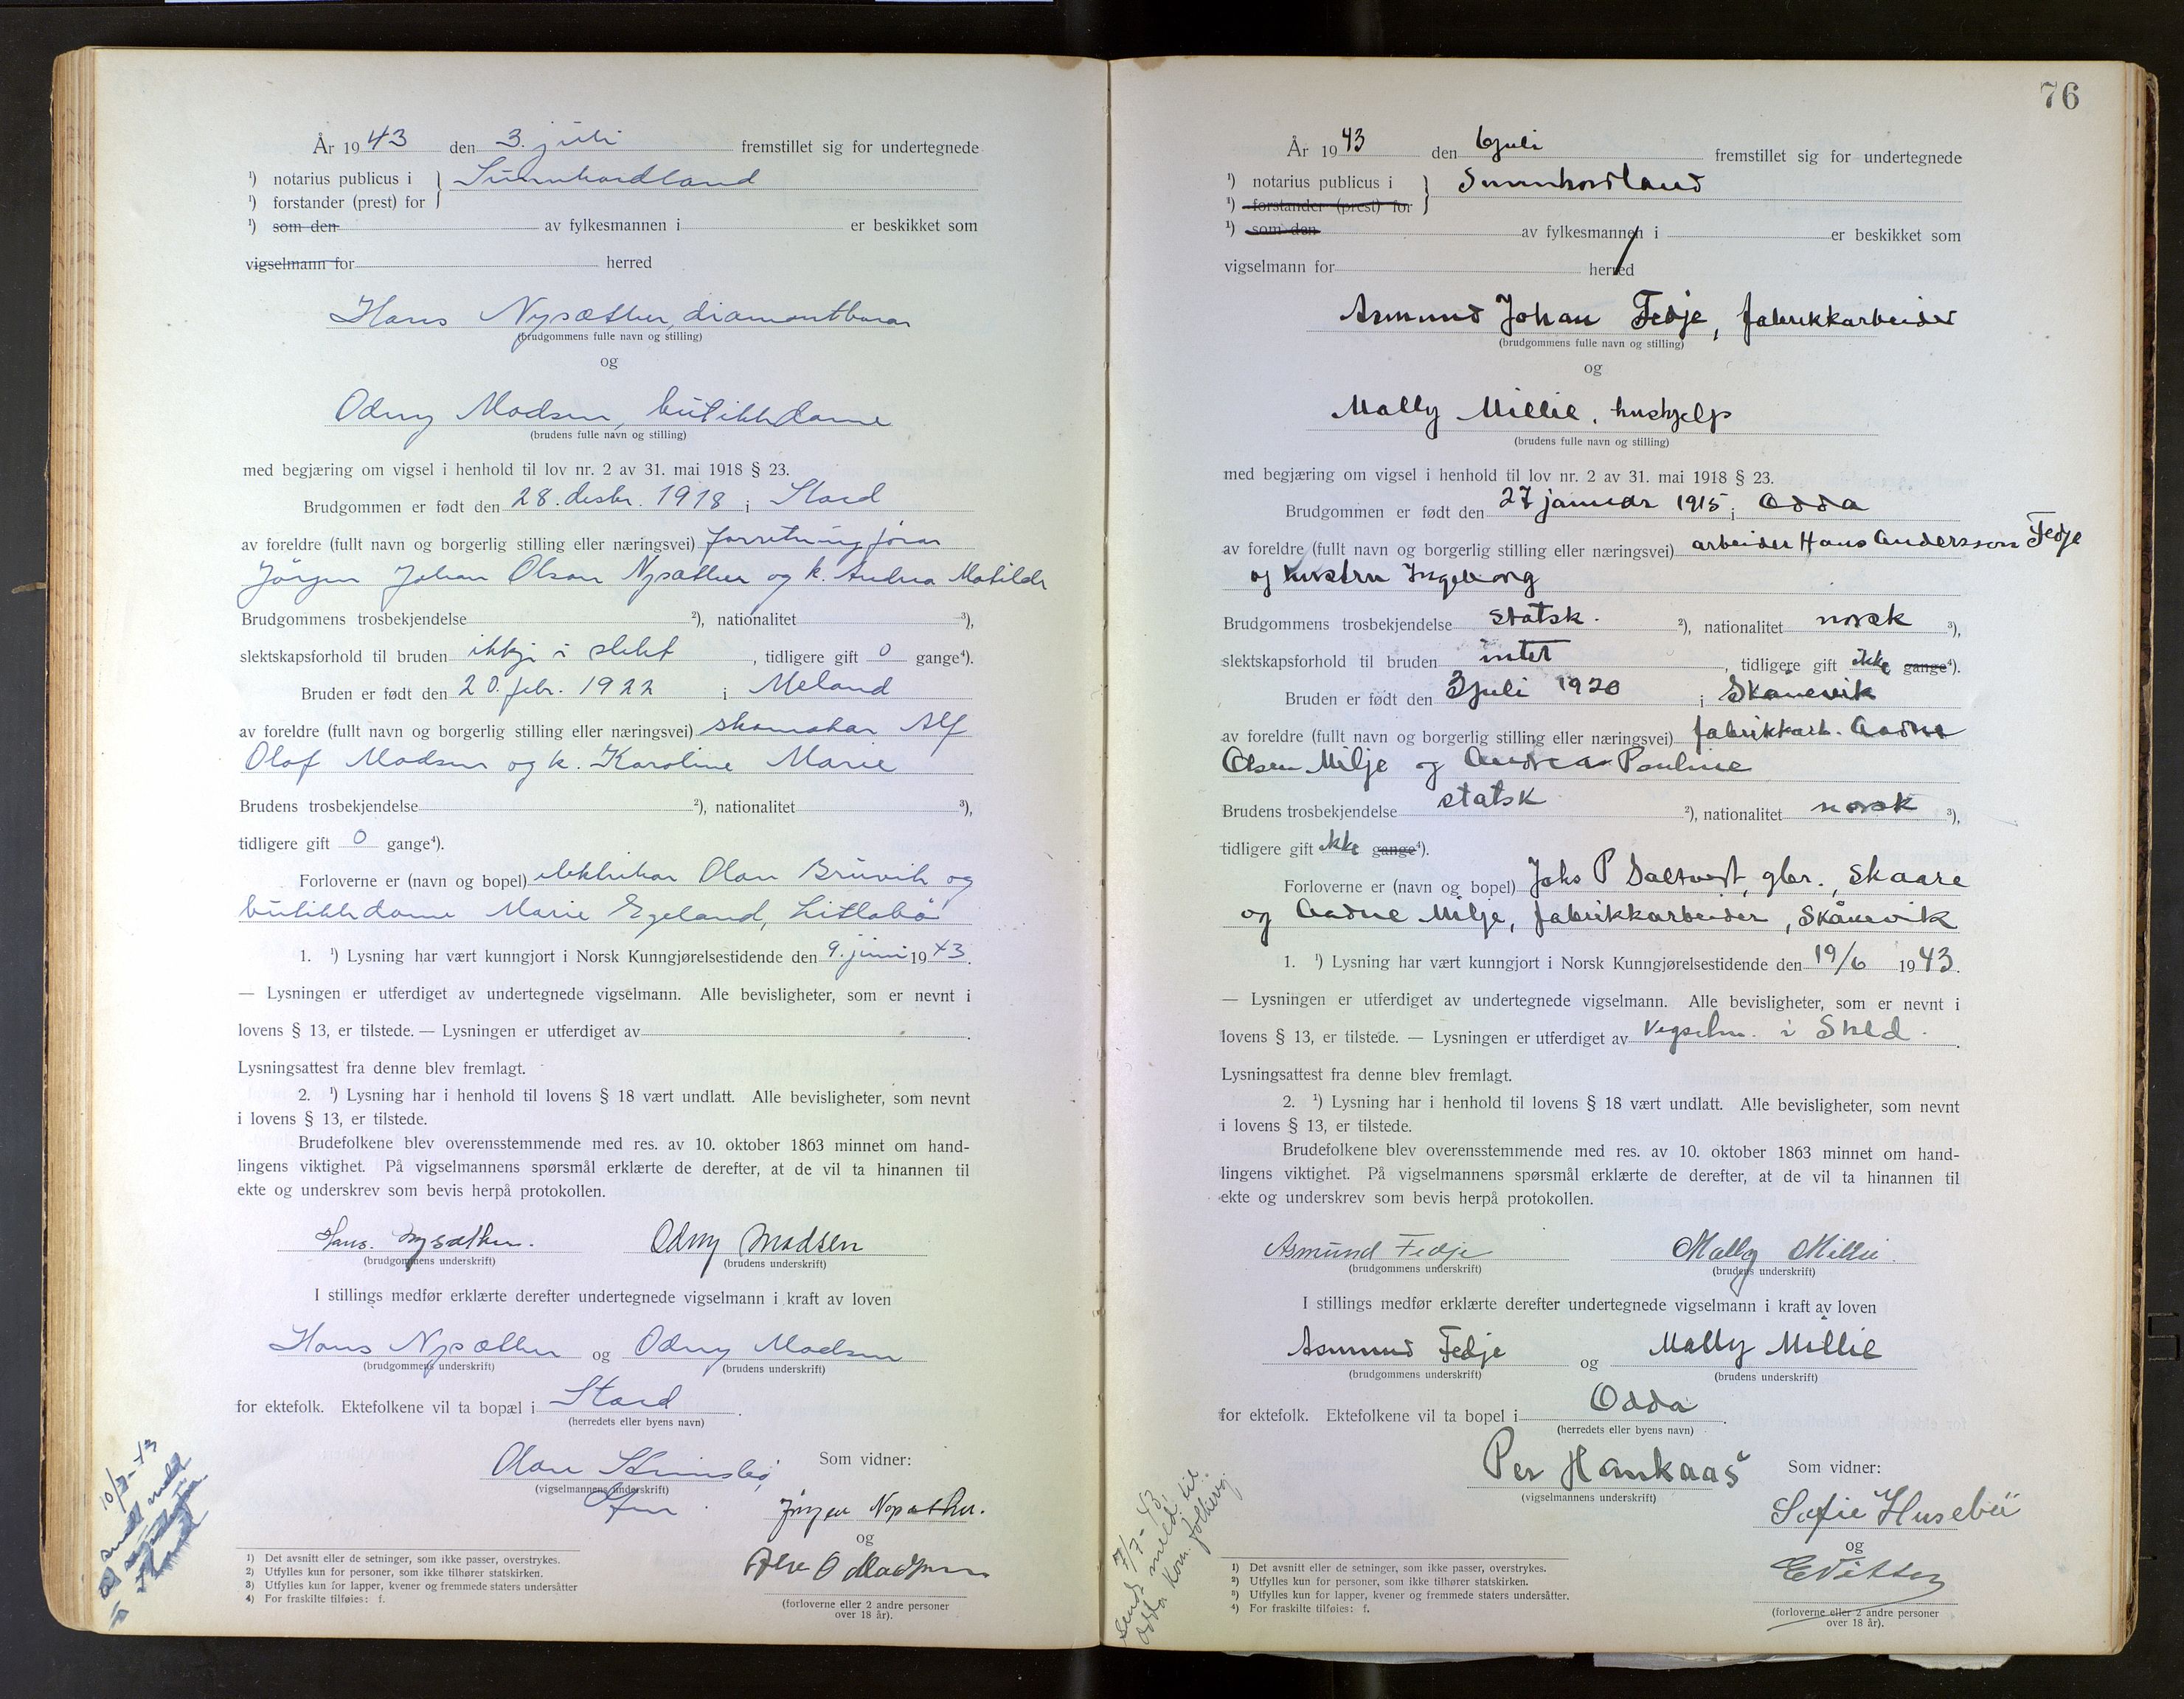 År 1943 den 3. juli fremstillet sig for undertegnede
¹) notarius publicus i } Sunnhordland
¹) forstander (prest) for
¹) som den av fylkesmannen i er beskikket som
vigselmann for herred
Hans Nysæther, diamantborar
(brudgommens fulle navn og stilling)
og
Odny Madsen, butikkdame
(brudens fulle navn og stilling)
med begjæring om vigsel i henhold til lov nr. 2 av 31. mai 1918 § 23.
Brudgommen er født den 28. desbr. 1918 i Stord
av foreldre (fullt navn og borgerlig stilling eller næringsvei) forretningsførar
Jørgen Johan Olson Nysæther og k. Andrea Matilde
Brudgommens trosbekjendelse ²), nationalitet ³),
slektskapsforhold til bruden ikkje i slekt, tidligere gift 0 gange⁴).
Bruden er født den 20. febr. 1922 i Meland
av foreldre (fullt navn og borgerlig stilling eller næringsvei) skomakar Alf
Olaf Madsen og k. Karoline Marie
Brudens trosbekjendelse ²), nationalitet ³),
tidligere gift 0 gange⁴).
Forloverne er (navn og bopel) elektrikar Olav Bruvik og
butikkdame Marie Egeland, Litlabø
1. ¹) Lysning har vært kunngjort i Norsk Kunngjørelsestidende den 9. juni 1943.
— Lysningen er utferdiget av undertegnede vigselmann. Alle bevisligheter, som er nevnt i
lovens § 13, er tilstede. — Lysningen er utferdiget av .
Lysningsattest fra denne blev fremlagt.
2. ¹) Lysning har i henhold til lovens § 18 vært undlatt. Alle bevisligheter, som nevnt
i lovens § 13, er tilstede.
Brudefolkene blev overensstemmende med res. av 10. oktober 1863 minnet om hand-
lingens viktighet. På vigselmannens spørsmål erklærte de derefter, at de vil ta hinannen til
ekte og underskrev som bevis herpå protokollen.
Hans. Nysæther. Odny Madsen
(brudgommens underskrift) (brudens underskrift)
I stillings medfør erklærte derefter undertegnede vigselmann i kraft av loven
Hans Nysæther og Odny Madsen
(brudgommens underskrift) (brudens underskrift)
for ektefolk. Ektefolkene vil ta bopæl i Stord.
(herredets eller byens navn)
Olav Som vidner:
(vigselmannens underskrift)
Jørgen Nysæther.
og
Madsen
(forloverne eller 2 andre personer
over 18 år).
10/7-43
sendt meld
¹) Det avsnitt eller de setninger, som ikke passer, overstrykes.
²) Utfylles kun for personer, som ikke tilhører statskirken.
³) Utfylles kun for lapper, kvener og fremmede staters undersåtter
⁴) For fraskilte tilføies: f.
76
År 1943 den 6 juli fremstillet sig for undertegnede
¹) notarius publicus i } Sunnhordland
¹) forstander (prest) for
¹) som den av fylkesmannen i er beskikket som
vigselmann for herred
Asmund Johan Fedje, fabrikkarbeider
(brudgommens fulle navn og stilling)
og
Mally Millie, hushjelp
(brudens fulle navn og stilling)
med begjæring om vigsel i henhold til lov nr. 2 av 31. mai 1918 § 23.
Brudgommen er født den 27 januar 1915 i Odda
av foreldre (fullt navn og borgerlig stilling eller næringsvei) arbeider Hans Andersson Fedje
og hustru Ingeborg
Brudgommens trosbekjendelse statsk. ²), nationalitet norsk ³),
slektskapsforhold til bruden intet, tidligere gift ikke gange⁴).
Bruden er født den 3 juli 1920 i Skånevik
av foreldre (fullt navn og borgerlig stilling eller næringsvei) fabrikkarb. Aadne
Olsen Milje og Andrea Pauline
Brudens trosbekjendelse statsk ²), nationalitet norsk ³),
tidligere gift ikke gange⁴).
Forloverne er (navn og bopel) Joks P Saltvedt, gbr., Skaare
og Aadne Milje, fabrikkarbeider, Skånevik
1. ¹) Lysning har vært kunngjort i Norsk Kunngjørelsestidende den 19/6 1943.
— Lysningen er utferdiget av undertegnede vigselmann. Alle bevisligheter, som er nevnt i
lovens § 13, er tilstede. — Lysningen er utferdiget av Vigselm. i Skld.
Lysningsattest fra denne blev fremlagt.
2. ¹) Lysning har i henhold til lovens § 18 vært undlatt. Alle bevisligheter, som nevnt
i lovens § 13, er tilstede.
Brudefolkene blev overensstemmende med res. av 10. oktober 1863 minnet om hand-
lingens viktighet. På vigselmannens spørsmål erklærte de derefter, at de vil ta hinannen til
ekte og underskrev som bevis herpå protokollen.
Asmund Fedje Mally Millie.
(brudgommens underskrift) (brudens underskrift)
I stillings medfør erklærte derefter undertegnede vigselmann i kraft av loven
Asmund Fedje og Mally Millie
(brudgommens underskrift) (brudens underskrift)
for ektefolk. Ektefolkene vil ta bopel i Odda.
(herredets eller byens navn)
Per Haukaas Som vidner:
(vigselmannens underskrift)
Sofie Husebø
og
(forloverne eller 2 andre personer
over 18 år).
Sendt 7/7-43
Odda meld. til
kom. folkereg.
¹) Det avsnitt eller de setninger, som ikke passer, overstrykes.
²) Utfylles kun for personer, som ikke tilhører statskirken.
³) Utfylles kun for lapper, kvener og fremmede staters undersåtter.
⁴) For fraskilte tilføies: f.